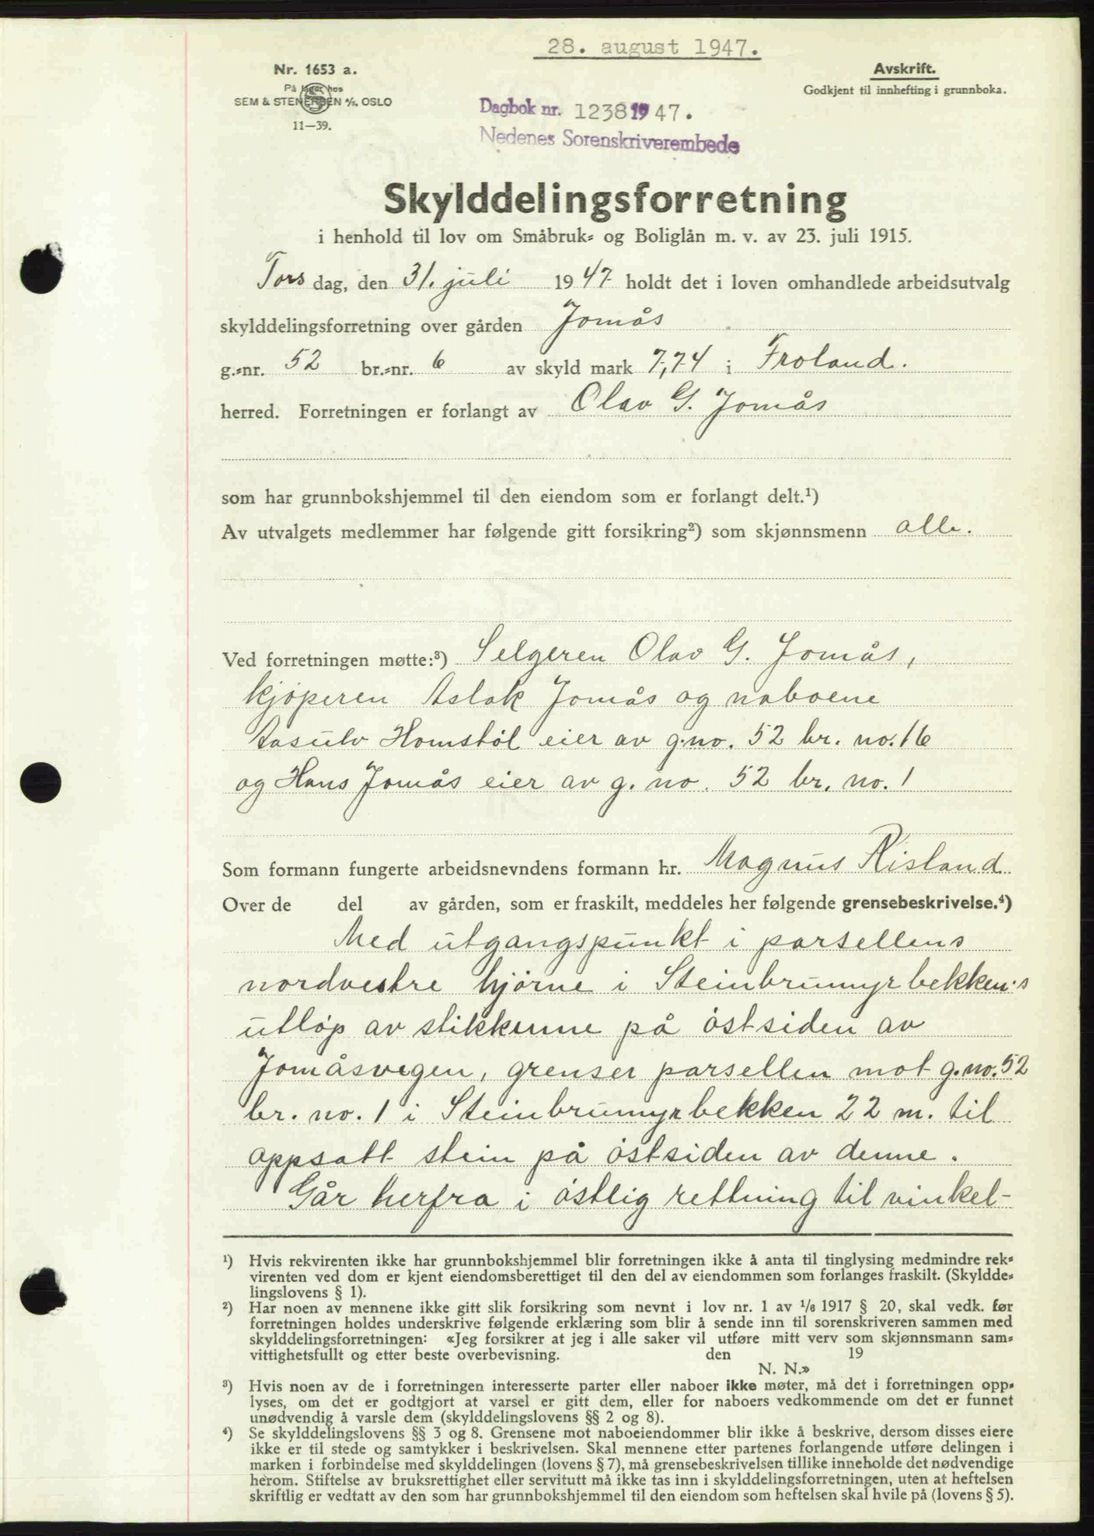 28. august 1947.
Nr. 1653 a.
På lager hos
SEM & STENERSEN A/S, OSLO
11—39.
Avskrift.
Godkjent til innhefting i grunnboka.
Dagbok nr. 1238 1947.
Nedenes Sorenskriverembede
Skylddelingsforretning
i henhold til lov om Småbruk- og Boliglån m. v. av 23. juli 1915.
Torsdag, den 31. juli 1947 holdt det i loven omhandlede arbeidsutvalg
skylddelingsforretning over gården Jomås
g.-nr. 52 br.-nr. 6 av skyld mark 7,74 i Froland.
herred. Forretningen er forlangt av Olav G. Jomås
som har grunnbokshjemmel til den eiendom som er forlangt delt.¹)
Av utvalgets medlemmer har følgende gitt forsikring²) som skjønnsmenn alle.
Ved forretningen møtte:³) Selgeren Olav G. Jomås,
kjøperen Aslak Jomås og naboene
Aasulv Homstøl eier av g.no. 52 br. no. 16
og Hans Jomås eier av g. no. 52 br. no. 1
Som formann fungerte arbeidsnevndens formann hr. Magnus Risland
Over de del av gården, som er fraskilt, meddeles her følgende grensebeskrivelse.⁴)
Med utgangspunkt i parsellens
nordvestre hjørne i Steinbrumyrbekken's
utløp av stikkrenne på østsiden av
Jomåsvegen, grenser parsellen mot g.no. 52
br. no. 1 i Steinbrumyrbekken 22 m. til
oppsatt stein på østsiden av denne.
Går herfra i østlig rettning til vinkel-
¹) Hvis rekvirenten ikke har grunnbokshjemmel blir forretningen ikke å anta til tinglysing medmindre rek-
virenten ved dom er kjent eiendomsberettiget til den del av eiendommen som forlanges fraskilt. (Skyldde-
lingslovens § 1).
²) Har noen av mennene ikke gitt slik forsikring som nevnt i lov nr. 1 av 1/6 1917 § 20, skal vedk. før
forretningen holdes underskrive følgende erklæring som blir å sende inn til sorenskriveren sammen med
skylddelingsforretningen: «Jeg forsikrer at jeg i alle saker vil utføre mitt verv som skjønnsmann sam-
vittighetsfullt og etter beste overbevisning. den 19
N. N.»
³) Hvis noen av de i forretningen interesserte parter eller naboer ikke møter, må det i forretningen opp-
lyses, om det er godtgjort at varsel er gitt dem, eller for naboers vedkommende om det er funnet
unødvendig å varsle dem (skylddelingslovens §§ 2 og 8).
⁴) Se skylddelingslovens §§ 3 og 8. Grensene mot naboeiendommer blir ikke å beskrive, dersom disses eiere
ikke er til stede og samtykker i beskrivelsen. Skal mennene etter partenes forlangende utføre delingen i
marken i forbindelse med skylddelingen (lovens § 7), må grensebeskrivelsen tillike inneholde det nødvendige
herom. Stiftelse av bruksrettighet eller servitutt må ikke tas inn i skylddelingsforretningen, uten at heftelsen
skriftlig er vedtatt av den som har grunnbokshjemmel til den eiendom som heftelsen skal hvile på (lovens § 5).